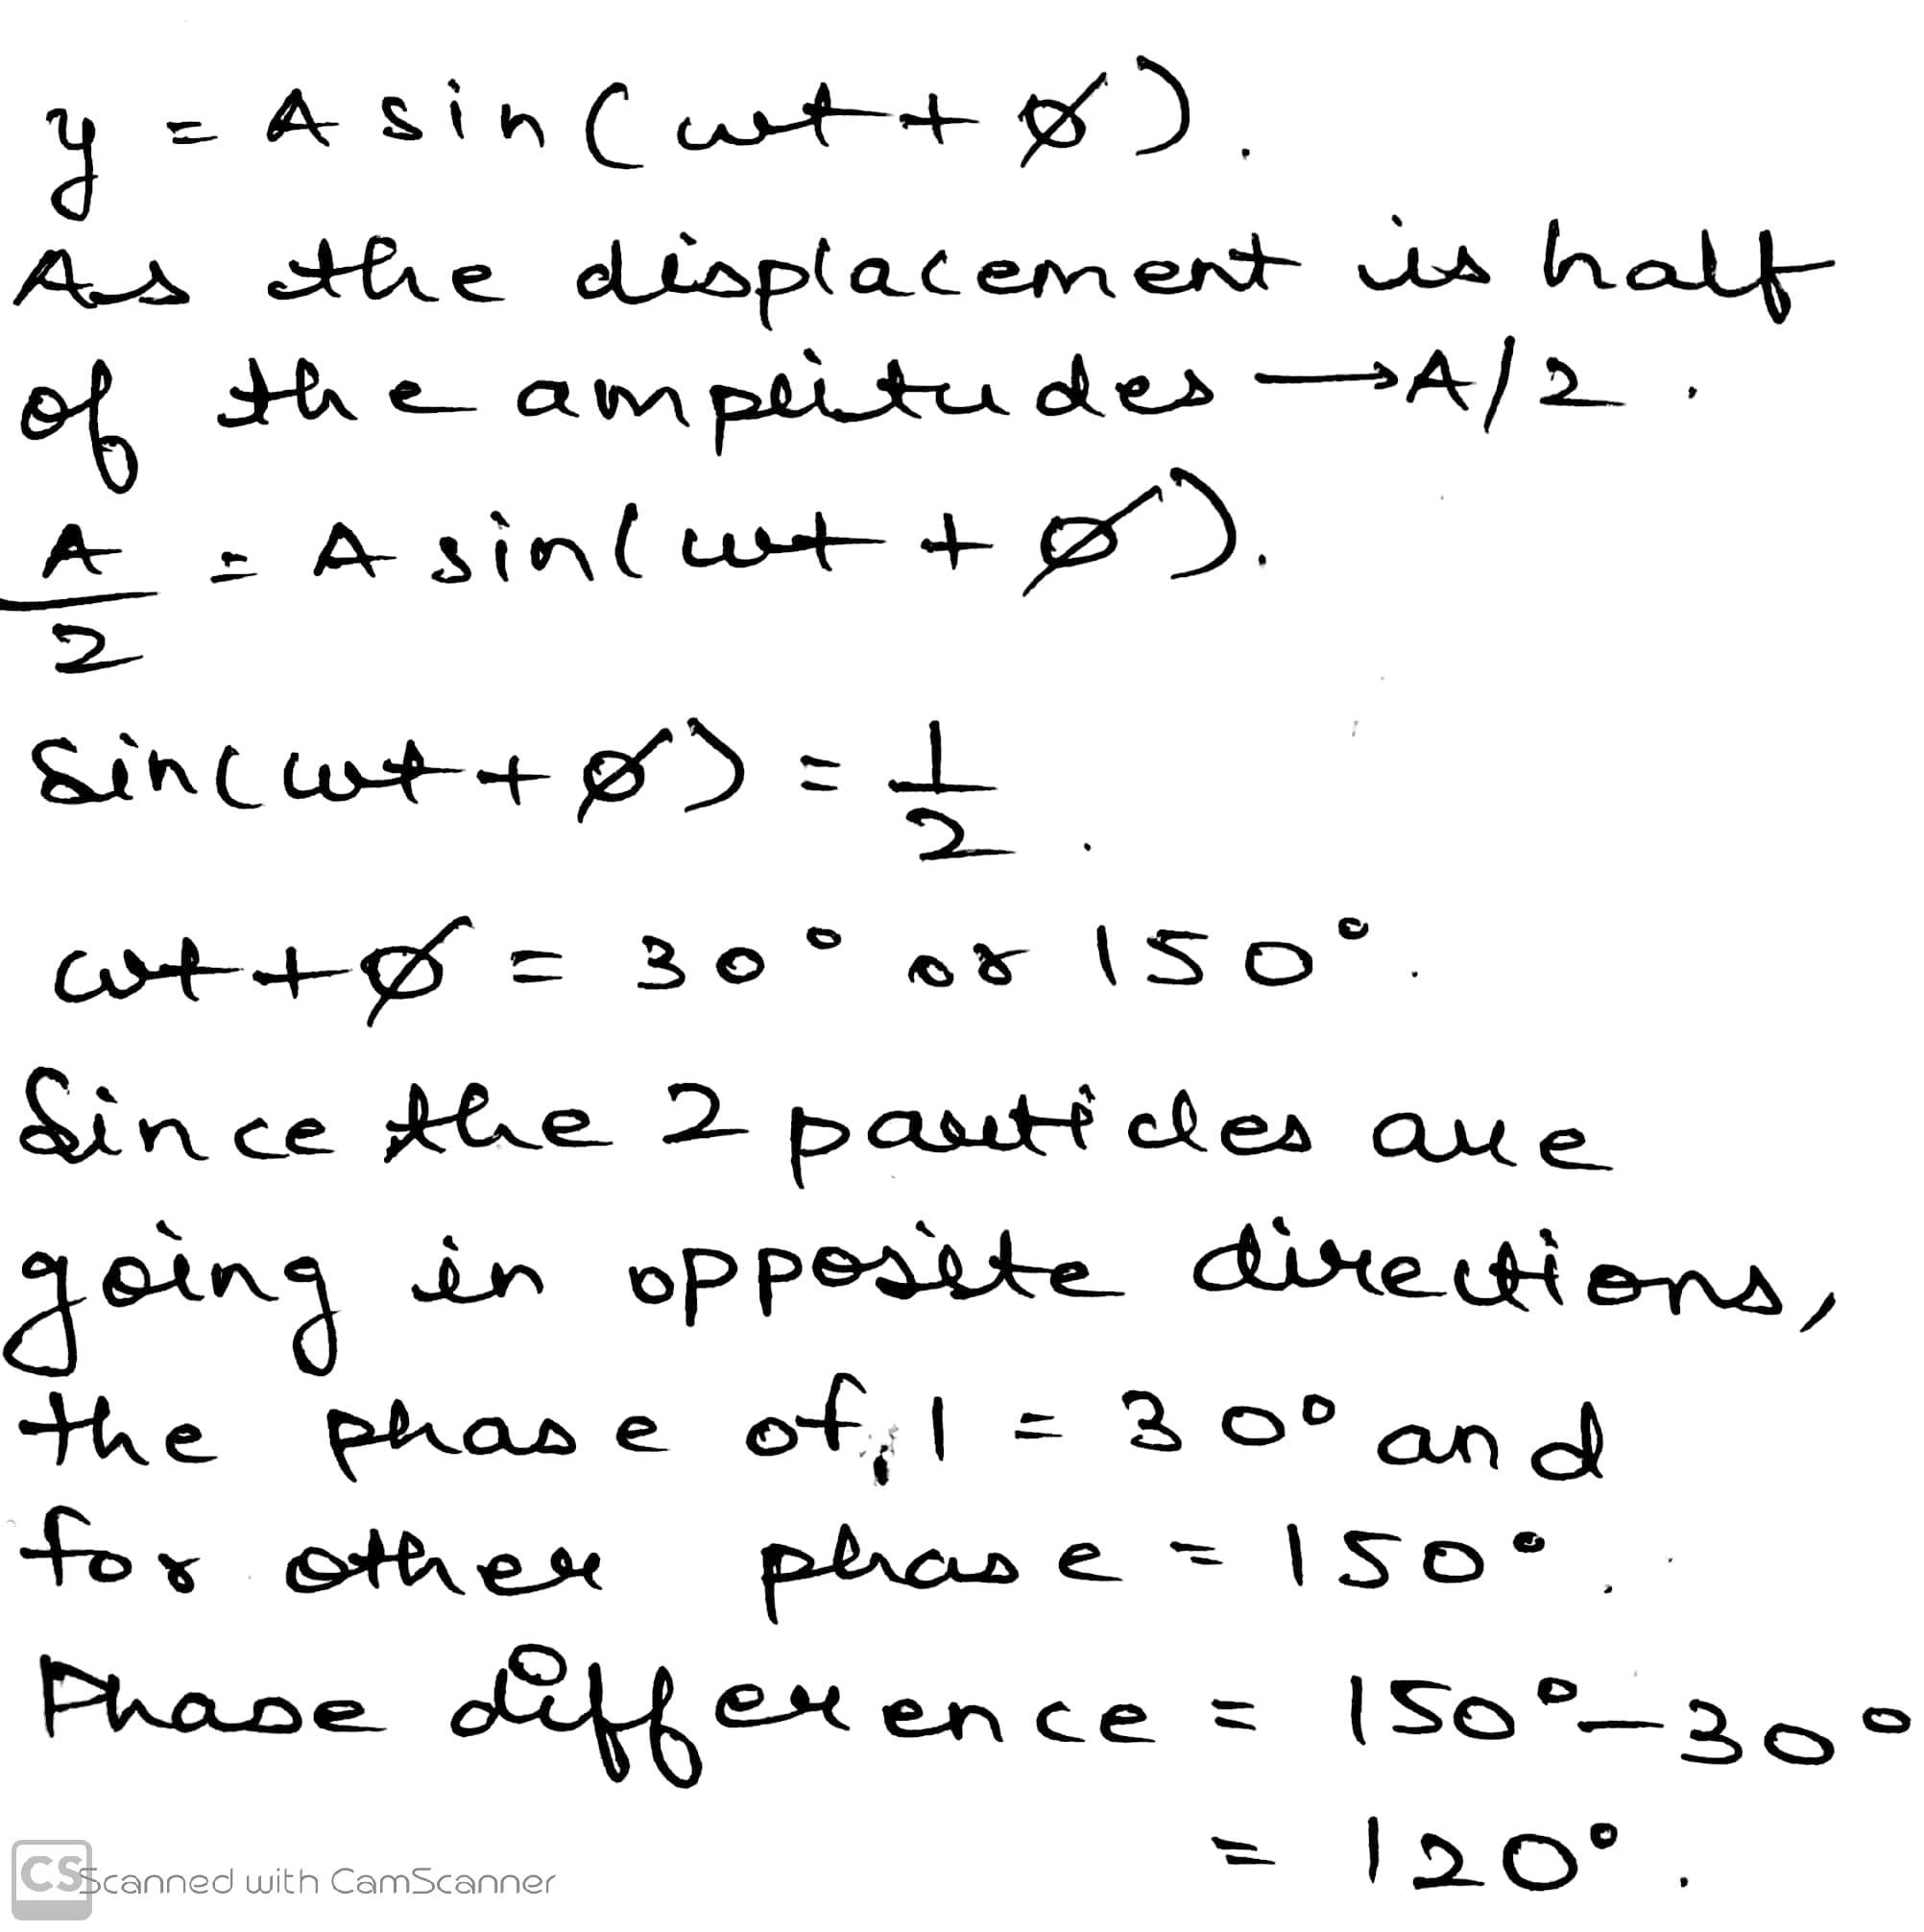 y = A sin(ωt + ø).
As the displacement is half
of the amplitudes → A/2.
A/2 = A sin(ωt + ø).
sin(ωt + ø) = 1/2.
ωt + ø = 30° or 150°.
Since the 2 particles are
going in opposite directions,
the phase of 1 = 30° and
for other phase = 150°.
Phase difference = 150° - 30°
= 120°.
CS Scanned with CamScanner